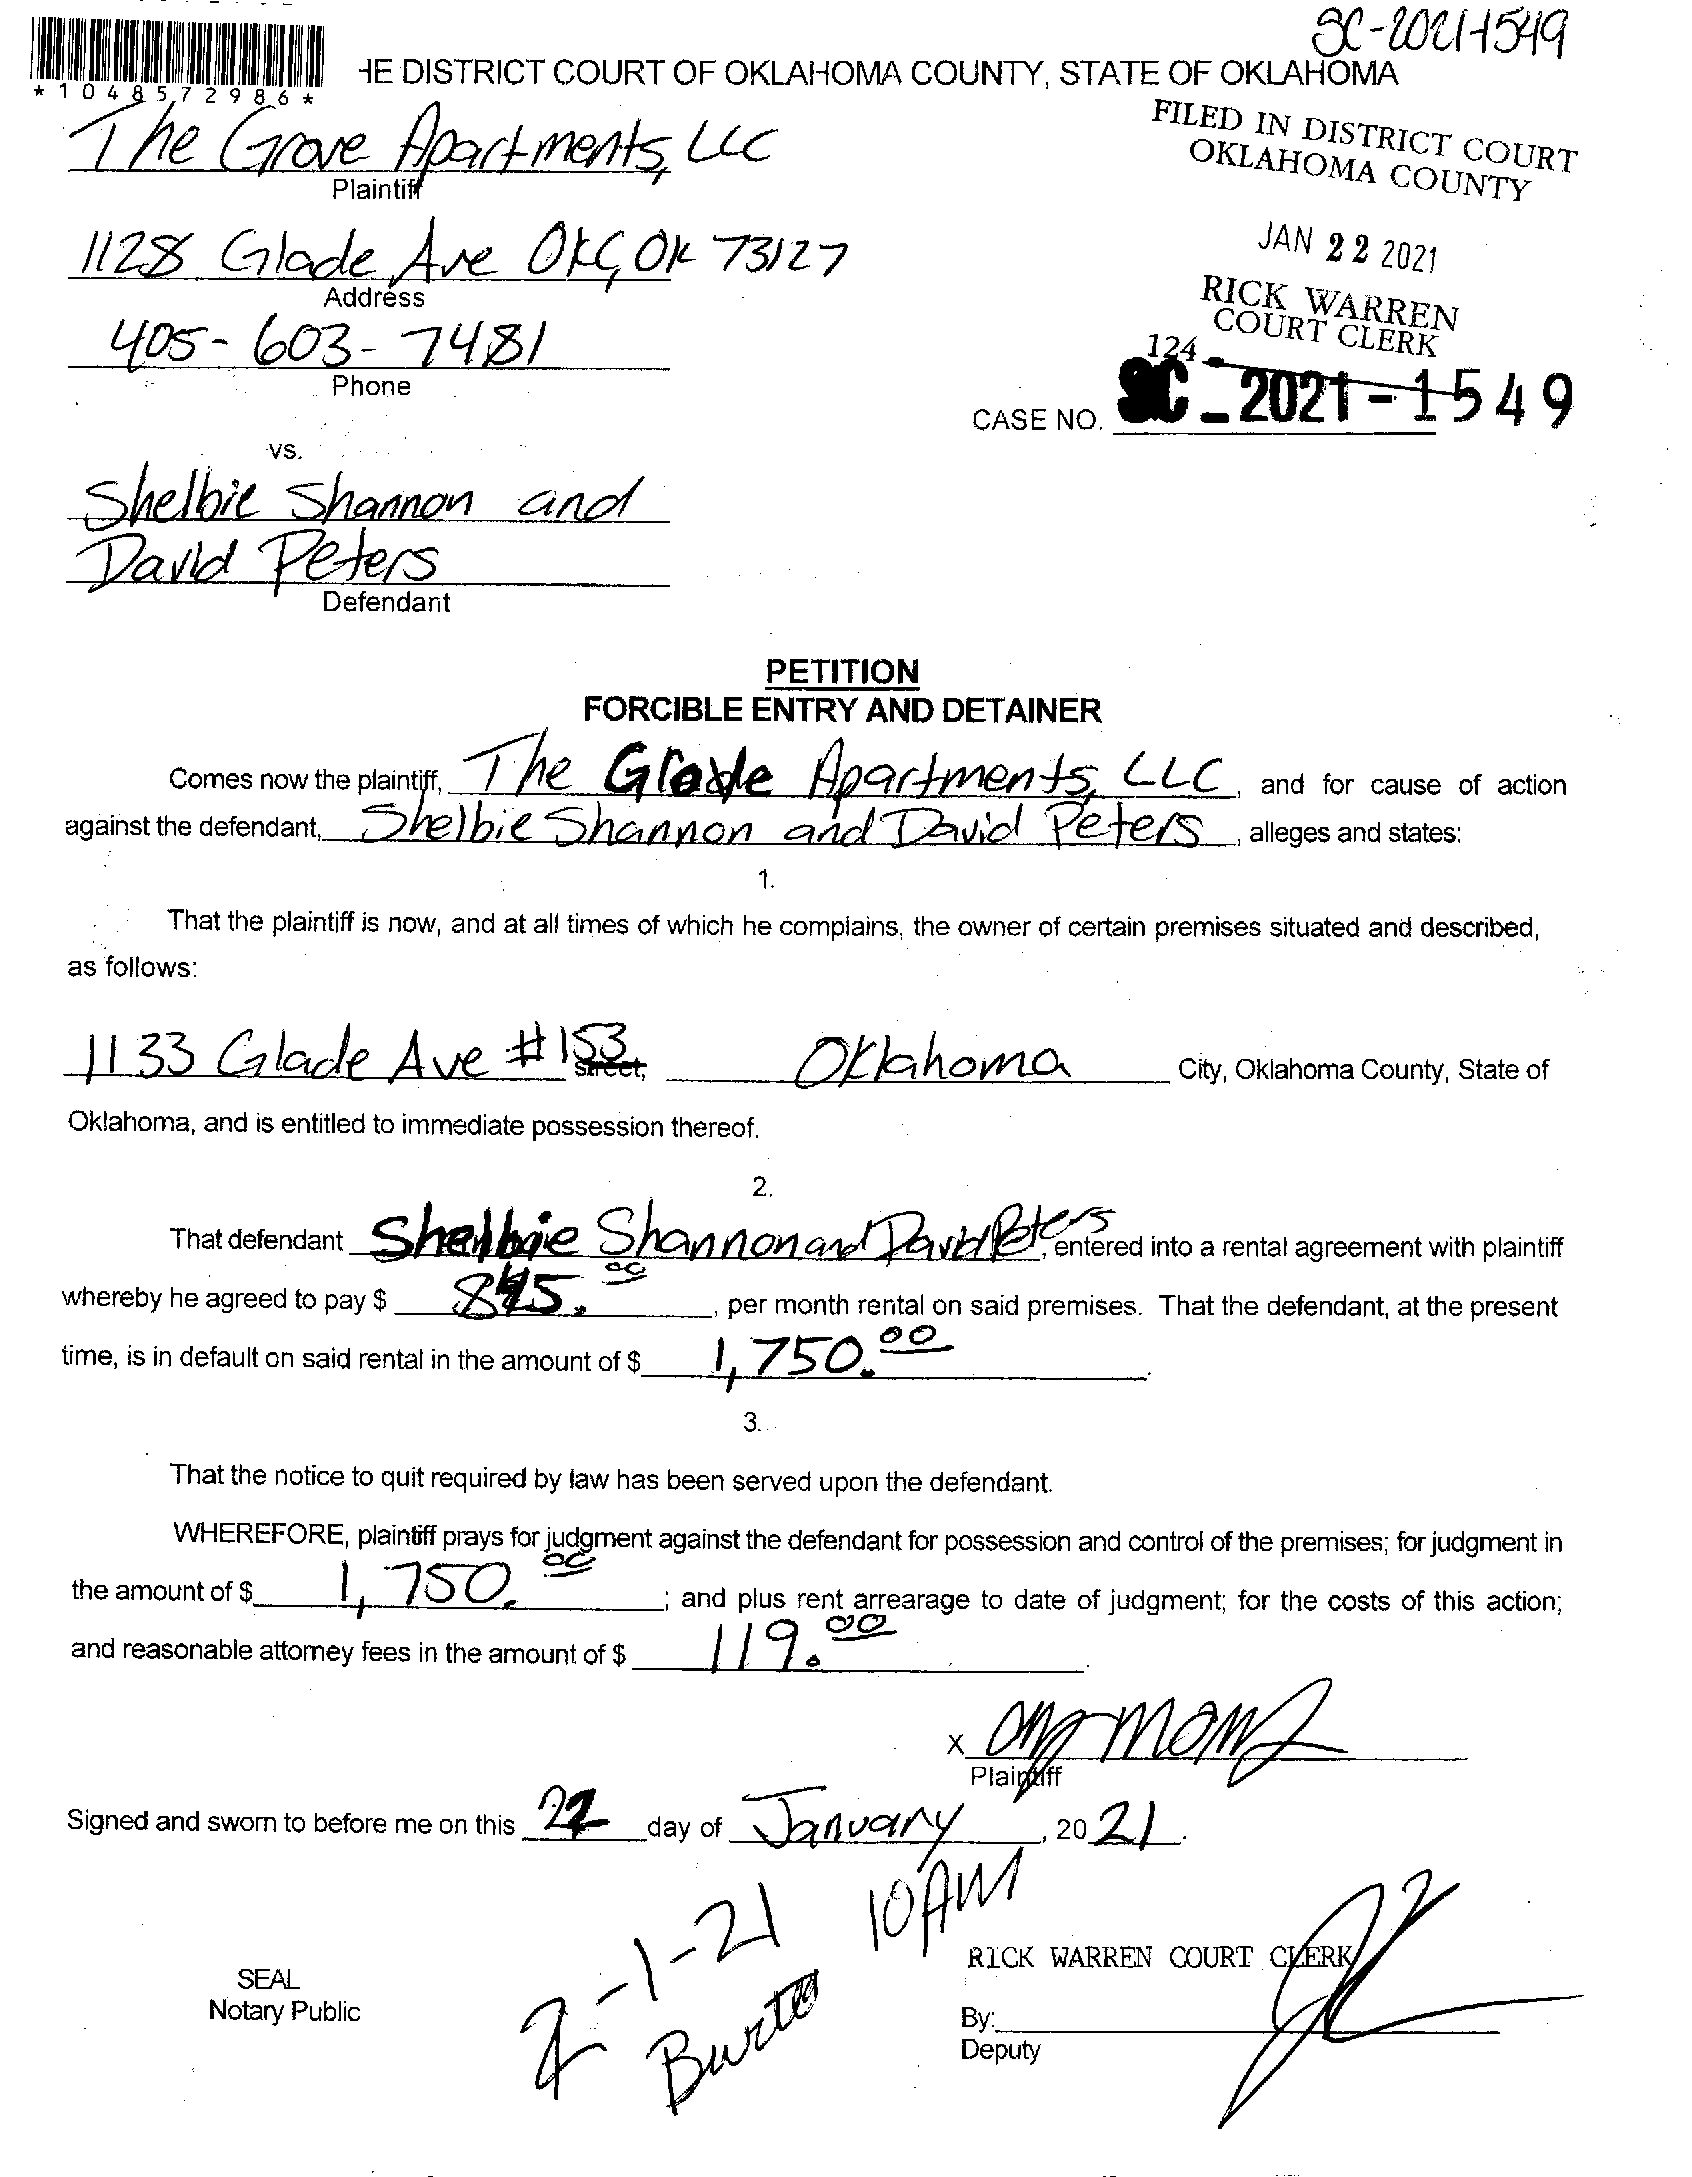 SC-2021-1549
*1048572986*
HE DISTRICT COURT OF OKLAHOMA COUNTY, STATE OF OKLAHOMA
The Grove Apartments, LLC
Plaintiff
FILED IN DISTRICT COURT
OKLAHOMA COUNTY
1128 Glade Ave OKC, OK 73127
Address
JAN 22 2021
RICK WARREN
COURT CLERK
405-603-7481
Phone
124
CASE NO. SC-2021-1549
vs.
Shelbie Shannon and
David Peters
Defendant
PETITION
FORCIBLE ENTRY AND DETAINER
Comes now the plaintiff, The Apartments, LLC, and for cause of action
against the defendant, Shelbie Shannon and David Peters, alleges and states:
1.
That the plaintiff is now, and at all times of which he complains, the owner of certain premises situated and described,
as follows:
1133 Glade Ave #153 street, Oklahoma City, Oklahoma County, State of
Oklahoma, and is entitled to immediate possession thereof.
2.
That defendant Shelbie Shannon and David Peters, entered into a rental agreement with plaintiff
whereby he agreed to pay $ , per month rental on said premises. That the defendant, at the present
time, is in default on said rental in the amount of $ 1,750.00.
3.
That the notice to quit required by law has been served upon the defendant.
WHEREFORE, plaintiff prays for judgment against the defendant for possession and control of the premises; for judgment in
the amount of $ 1,750.00; and plus rent arrearage to date of judgment; for the costs of this action;
and reasonable attorney fees in the amount of $ 119.00.
X
Plaintiff
Signed and sworn to before me on this 22 day of January, 2021.
2-1-21 10AM
RICK WARREN COURT CLERK
SEAL
Notary Public
By:
Deputy